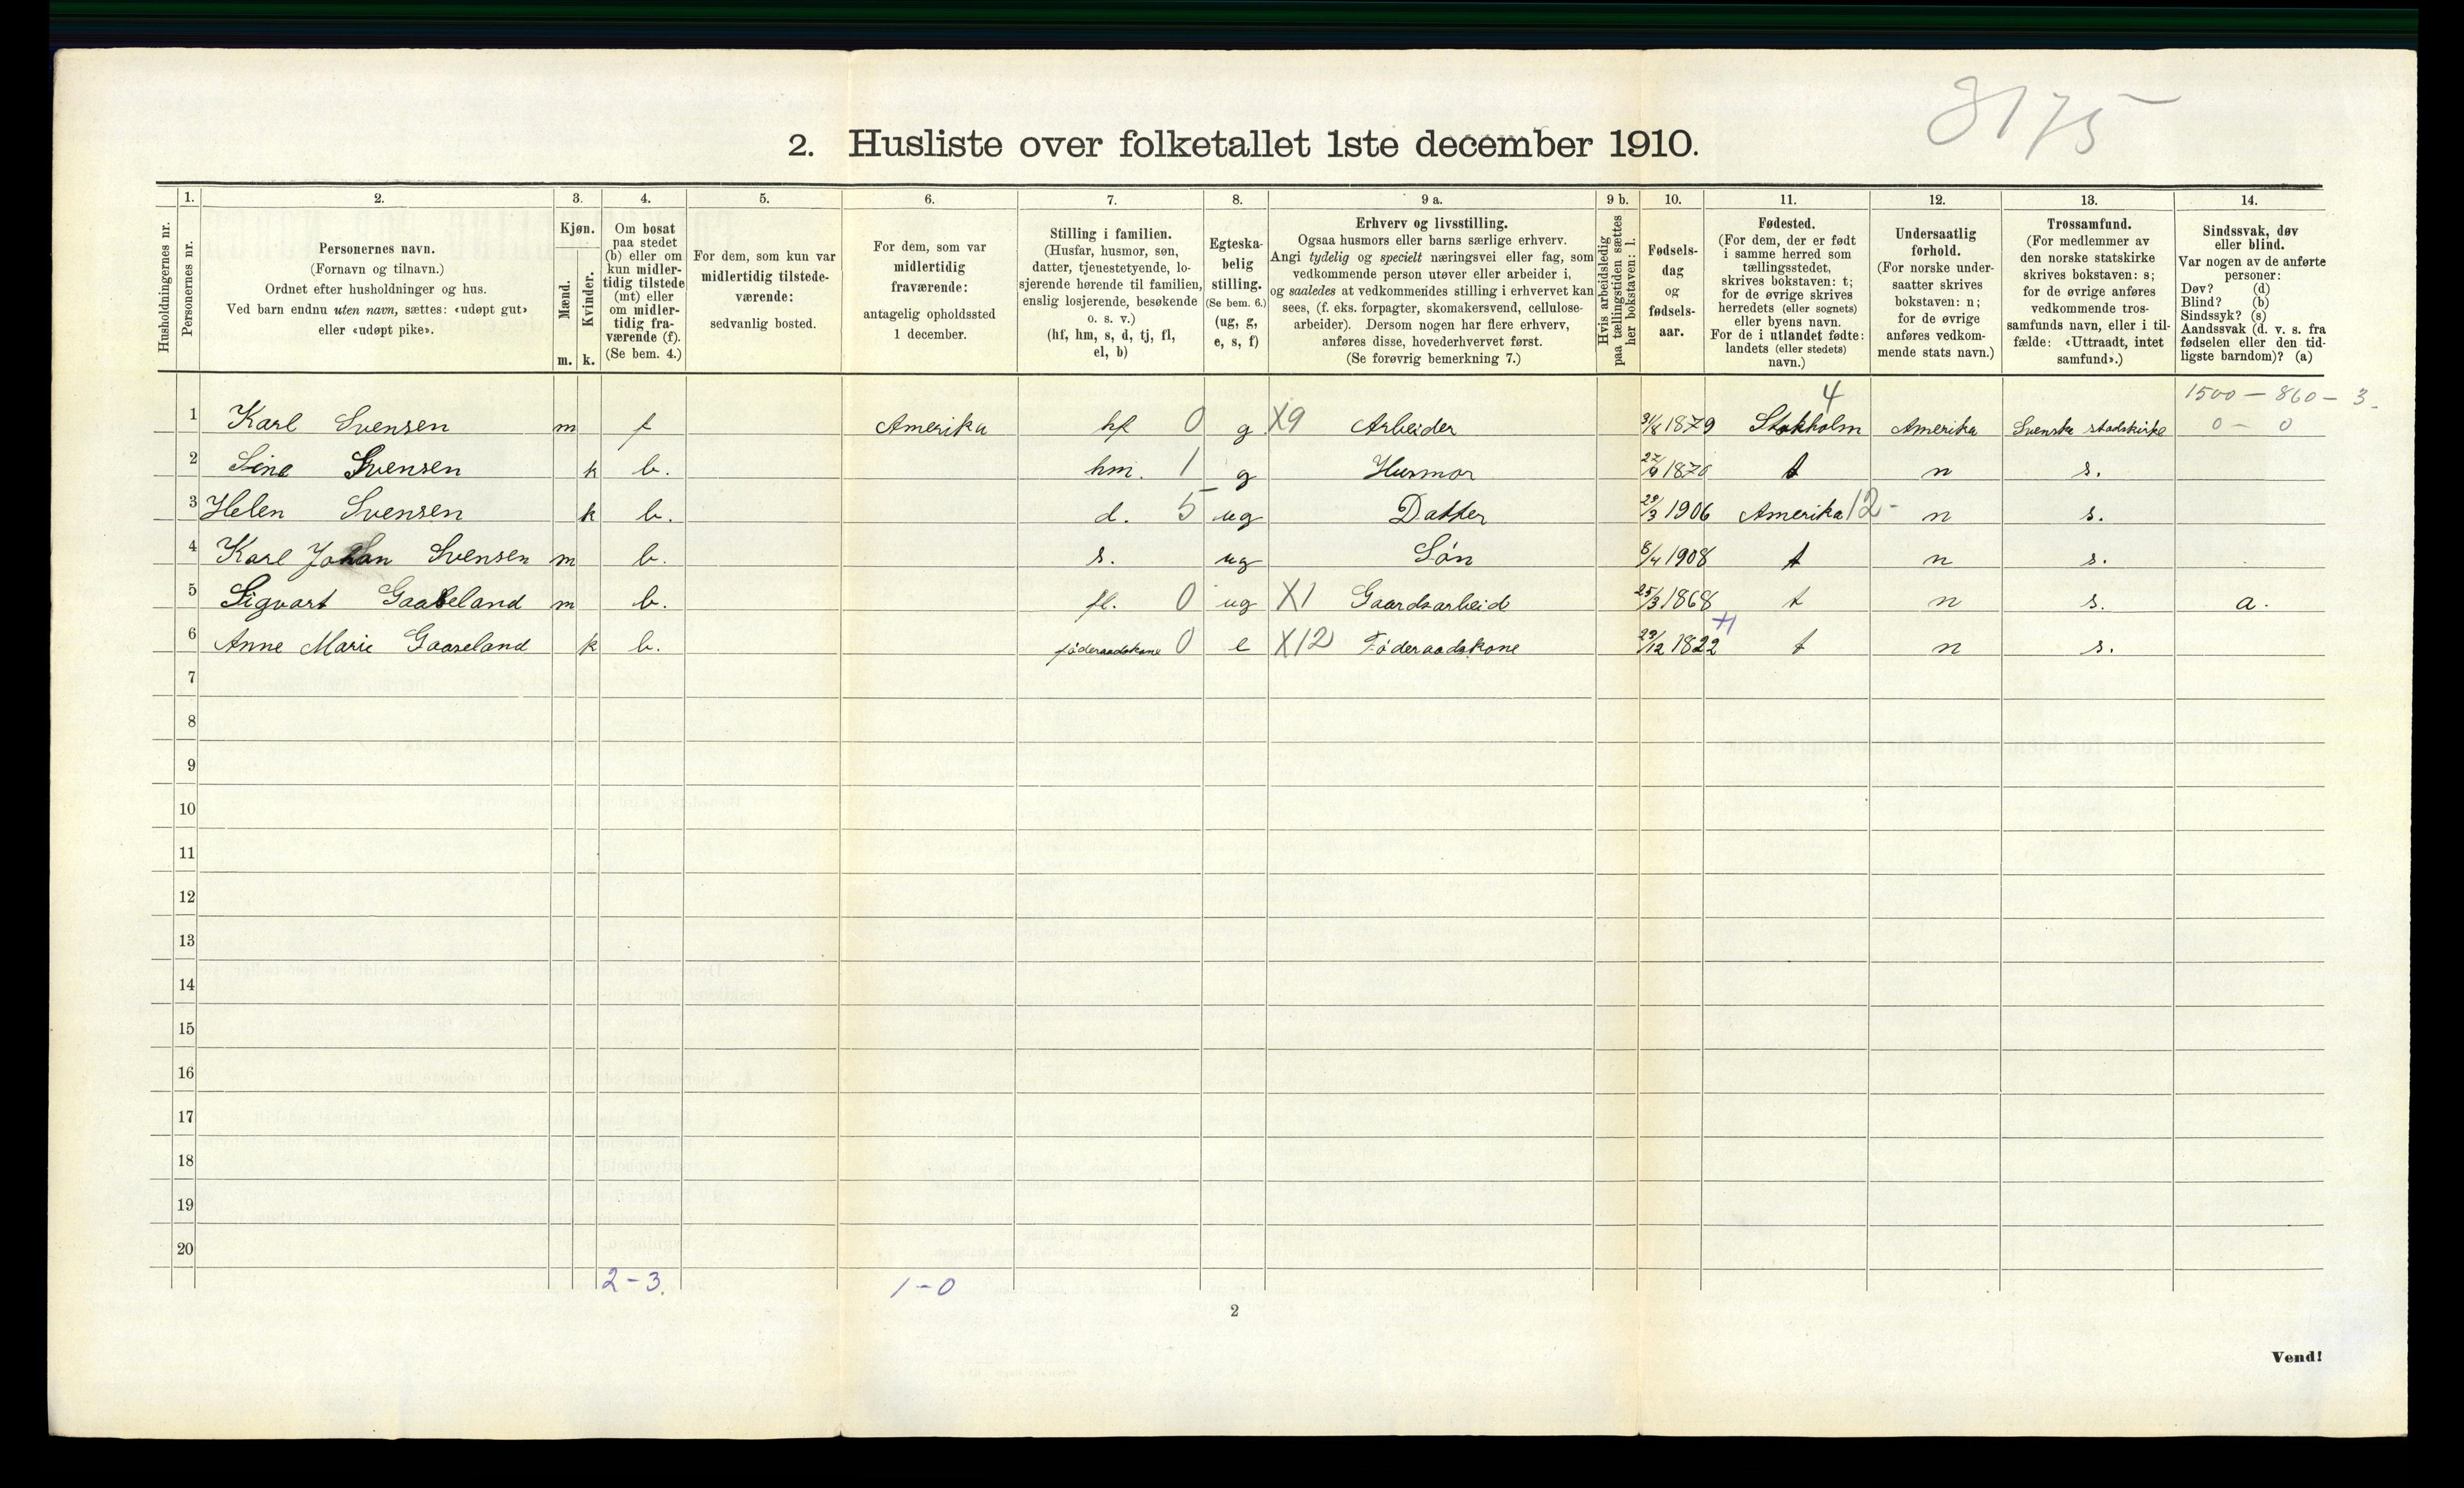 8175
2. Husliste over folketallet 1ste december 1910.
1. 2. 3. 4. 5. 6. 7. 8. 9 a. 9 b. 10. 11. 12. 13. 14.
Husholdningernes nr.
Personernes nr.
Personernes navn.
(Fornavn og tilnavn.)
Ordnet efter husholdninger og hus.
Ved barn endnu uten navn, sættes: «udøpt gut»
eller «udøpt pike».
Kjøn.
Mænd.
Kvinder.
m. k.
Om bosat
paa stedet
(b) eller om
kun midler-
tidig tilstede
(mt) eller
om midler-
tidig fra-
værende (f).
(Se bem. 4.)
For dem, som kun var
midlertidig tilstede-
værende:
sedvanlig bosted.
For dem, som var
midlertidig
fraværende:
antagelig opholdssted
1 december.
Stilling i familien.
(Husfar, husmor, søn,
datter, tjenestetyende, lo-
sjerende hørende til familien,
enslig losjerende, besøkende
o. s. v.)
(hf, hm, s, d, tj, fl,
el, b)
Egteska-
belig
stilling.
(Se bem. 6.)
(ug, g,
e, s, f)
Erhverv og livsstilling.
Ogsaa husmors eller barns særlige erhverv.
Angi tydelig og specielt næringsvei eller fag, som
vedkommende person utøver eller arbeider i,
og saaledes at vedkommendes stilling i erhvervet kan
sees, (f. eks. forpagter, skomakersvend, cellulose-
arbeider). Dersom nogen har flere erhverv,
anføres disse, hovederhvervet først.
(Se forøvrig bemerkning 7.)
Hvis arbeidsledig
paa tællingstiden sættes
her bokstaven: l.
Fødsels-
dag
og
fødsels-
aar.
Fødested.
(For dem, der er født
i samme herred som
tællingsstedet,
skrives bokstaven: t;
for de øvrige skrives
herredets (eller sognets)
eller byens navn.
For de i utlandet fødte:
landets (eller stedets)
navn.)
Undersaatlig
forhold.
(For norske under-
saatter skrives
bokstaven: n;
for de øvrige
anføres vedkom-
mende stats navn.)
Trossamfund.
(For medlemmer av
den norske statskirke
skrives bokstaven: s;
for de øvrige anføres
vedkommende tros-
samfunds navn, eller i til-
fælde: «Uttraadt, intet
samfund».)
Sindssvak, døv
eller blind.
Var nogen av de anførte
personer:
Døv? (d)
Blind? (b)
Sindssyk? (s)
Aandssvak (d. v. s. fra
fødselen eller den tid-
ligste barndom)? (a)
4 1500 - 860 - 3.
1 Karl Svensen m f Amerika hf 0 g X9 Arbeider 1879 Stokholm Amerika Svenske stadskirke 0 - 0
2 Sine Svensen k b. hm. 1 g Husmor t n s.
3 Helen Svensen k b. d. 5 ug Datter 29/3 1906 Amerika 12- n s.
4 Karl Johan Svensen m b. s. ug Søn 8/4 1908 t n s.
5 Sigvart Gaaseland m b. fl. 0 ug X1 Gaardsarbeid 25/3 1868 t n s. a.
6 Anne Marie Gaaseland k b. føderaadskone 0 e X12 Føderaadskone 29/12 1822 t n s.
7
8
9
10
11
12
13
14
15
16
17
18
19
20
2-3. 1-0
2
Vend!